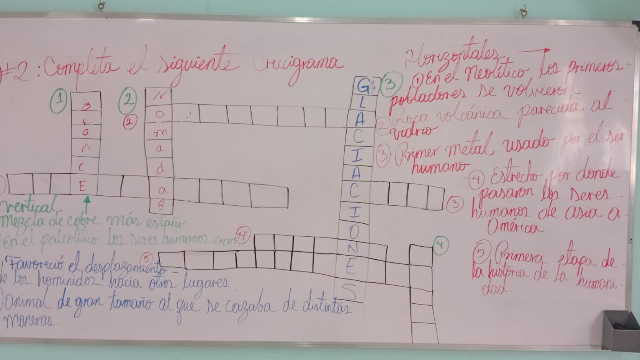 #2: Completa el siguiente crucigrama
Horizontales
① En el Neolítico, los primeros
pobladores se volvieron
② Roca volcánica parecida al
vidrio
③ Primer metal usado por el ser
humano
④ Estrecho por donde
pasaron los seres
humanos de asia a
América
⑤ Primera etapa de
la historia de la humani-
dad.
① ② ③
B R O N C E
N O M A D A S
G L A C I A C I O N E S
② ③ ④ ④ ⑤
Vertical
Mezcla de cobre más estaño
En el paleolítico los seres humanos eran
Favoreció el desplazamiento
de los homínidos hacia otros lugares
animal de gran tamaño al que se cazaba de distintas
maneras.